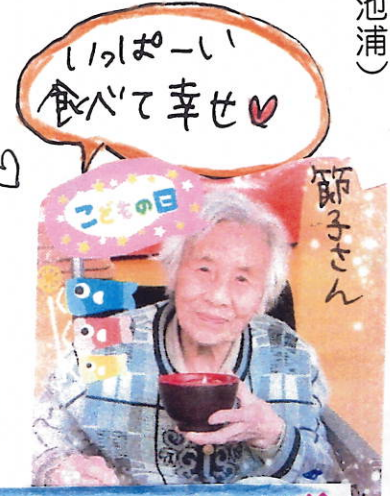 池浦）
いっぱーい
食べて幸せ♥
こどもの日
節子さん